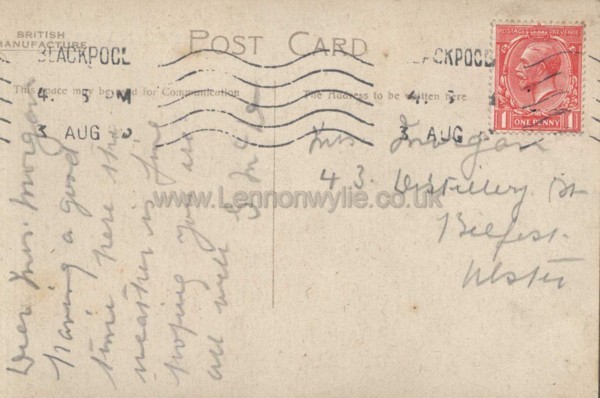 BRITISH
MANUFACTURE
POST CARD
BLACKPOOL
4. 5 PM
3 AUG
BLACKPOOL
4. 5
3 AUG
This space may be used for Communication
The Address to be written here
ONE PENNY
Dear Mrs. Morgan
Having a good
time here the
weather is fine
hoping you are
all well
Mrs Morgan
43 Distillery St
Belfast
Ulster
www.Lennonwylie.co.uk